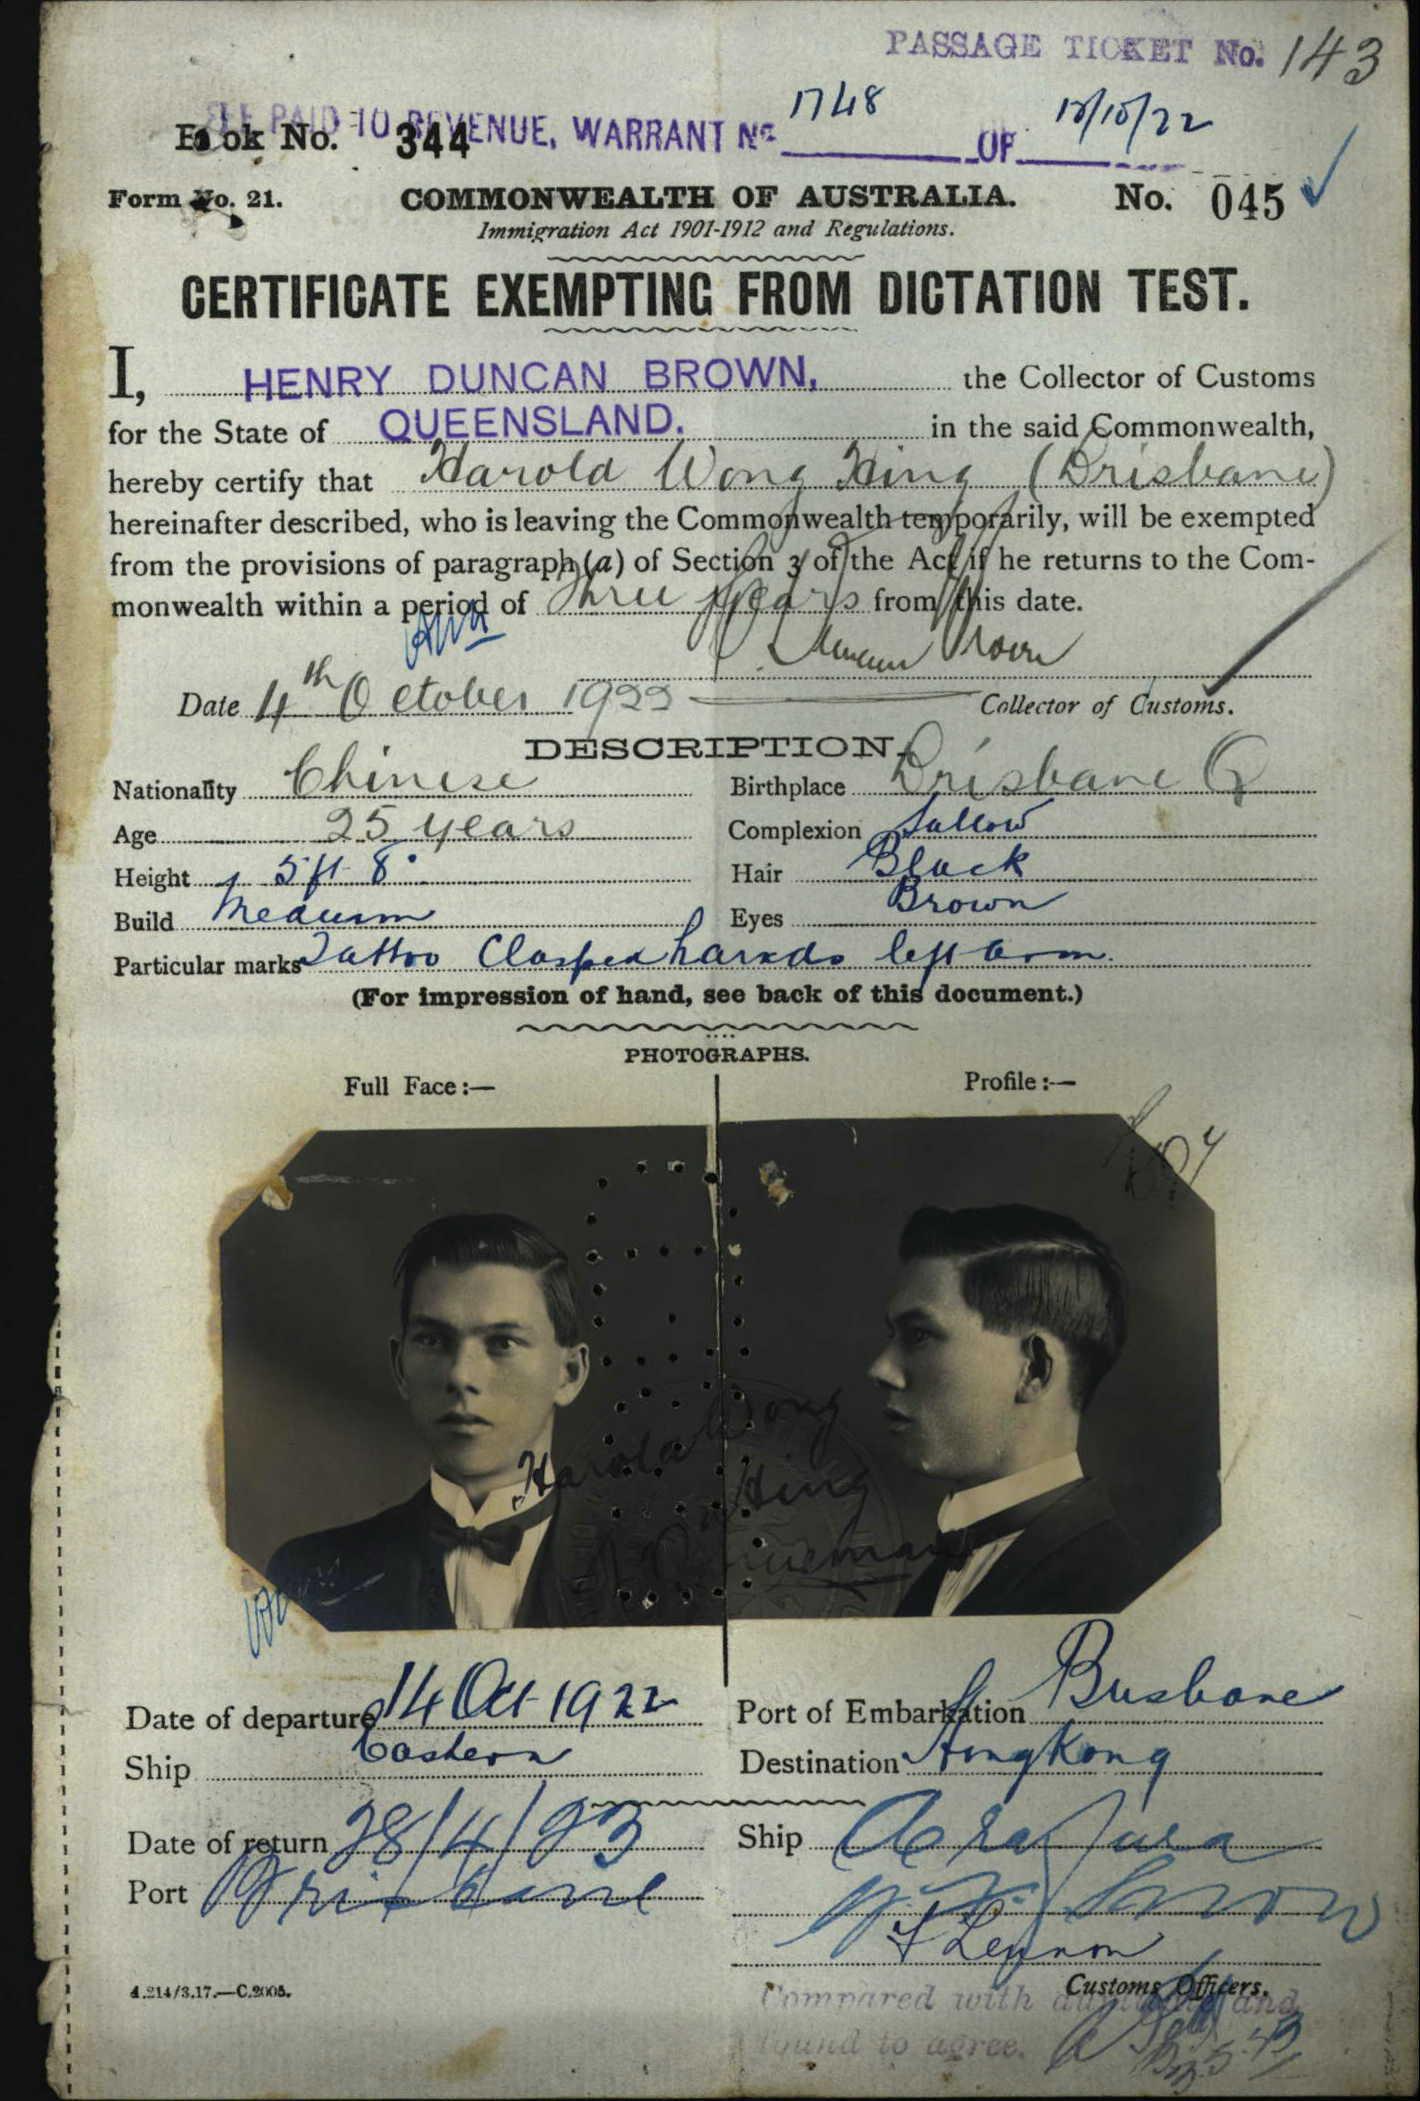 PASSAGE TICKET No. 143
FEE PAID TO REVENUE, WARRANT No 1748 OF 10/10/22
Book No. 344
Form No. 21. COMMONWEALTH OF AUSTRALIA. No. 045
Immigration Act 1901-1912 and Regulations.
CERTIFICATE EXEMPTING FROM DICTATION TEST.
I, HENRY DUNCAN BROWN, the Collector of Customs
for the State of QUEENSLAND. in the said Commonwealth,
hereby certify that Harold Wong Hing (Brisbane)
hereinafter described, who is leaving the Commonwealth temporarily, will be exempted
from the provisions of paragraph (a) of Section 3 of the Act if he returns to the Com-
monwealth within a period of Three years from this date.
H. Duncan Brown
Date 4th October 1922 Collector of Customs.
DESCRIPTION.
Nationality Chinese Birthplace Brisbane Q
Age 25 years Complexion Sallow
Height 5 ft 8" Hair Black
Build Medium Eyes Brown
Particular marks Tattoo Clasped hands left arm.
(For impression of hand, see back of this document.)
PHOTOGRAPHS.
Full Face:— Profile:—
Harold Wong
Hing
Date of departure 14 Oct 1922 Port of Embarkation Brisbane
Ship Eastern Destination Hong Kong
Date of return 28/4/23 Ship Arafura
Port Brisbane
F Lennon
Customs Officers.
4.214/3.17.—C.2005.
Compared with duplicate and
found to agree.